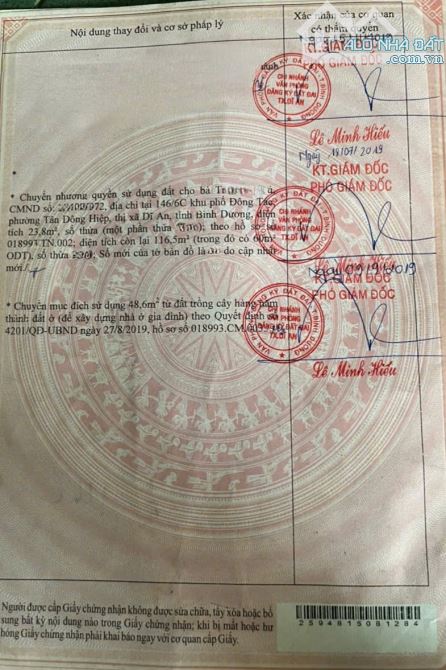 Nội dung thay đổi và cơ sở pháp lý
Xác nhận của cơ quan
có thẩm quyền
ALO NHÀ ĐẤT
.com.vn
PHÓ GIÁM ĐỐC
VĂN PHÒNG ĐĂNG KÝ ĐẤT ĐAI T. BÌNH DƯƠNG
CHI NHÁNH
VĂN PHÒNG
ĐĂNG KÝ ĐẤT ĐAI
TX.DĨ AN
Lê Minh Hiếu
Ngày 19/07/2019
KT.GIÁM ĐỐC
PHÓ GIÁM ĐỐC
* Chuyển nhượng quyền sử dụng đất cho bà
CMND số: địa chỉ tại 146/6C khu phố Đông Tác,
phường Tân Đông Hiệp, thị xã Dĩ An, tỉnh Bình Dương, diện
tích 23,8m², số thửa (một phần thửa ); theo hồ sơ số
018993.TN.002; diện tích còn lại 116,5m² (trong đó có 60m²
ODT), số thửa Số mới của tờ bản đồ là do cập nhật
mới./
CHI NHÁNH
VĂN PHÒNG
ĐĂNG KÝ ĐẤT ĐAI
TX.DĨ AN
Lê Minh Hiếu
Ngày
KT.GIÁM ĐỐC
PHÓ GIÁM ĐỐC
* Chuyển mục đích sử dụng 48,6m² từ đất trồng cây hàng năm
thành đất ở (để xây dựng nhà ở gia đình) theo Quyết định số
4201/QĐ-UBND ngày 27/8/2019, hồ sơ số 018993.CM.003
CHI NHÁNH
VĂN PHÒNG
ĐĂNG KÝ ĐẤT ĐAI
TX.DĨ AN
Lê Minh Hiếu
Người được cấp Giấy chứng nhận không được sửa chữa, tẩy xóa hoặc bổ
sung bất kỳ nội dung nào trong Giấy chứng nhận; khi bị mất hoặc hư
hỏng Giấy chứng nhận phải khai báo ngay với cơ quan cấp Giấy.
2594815081284